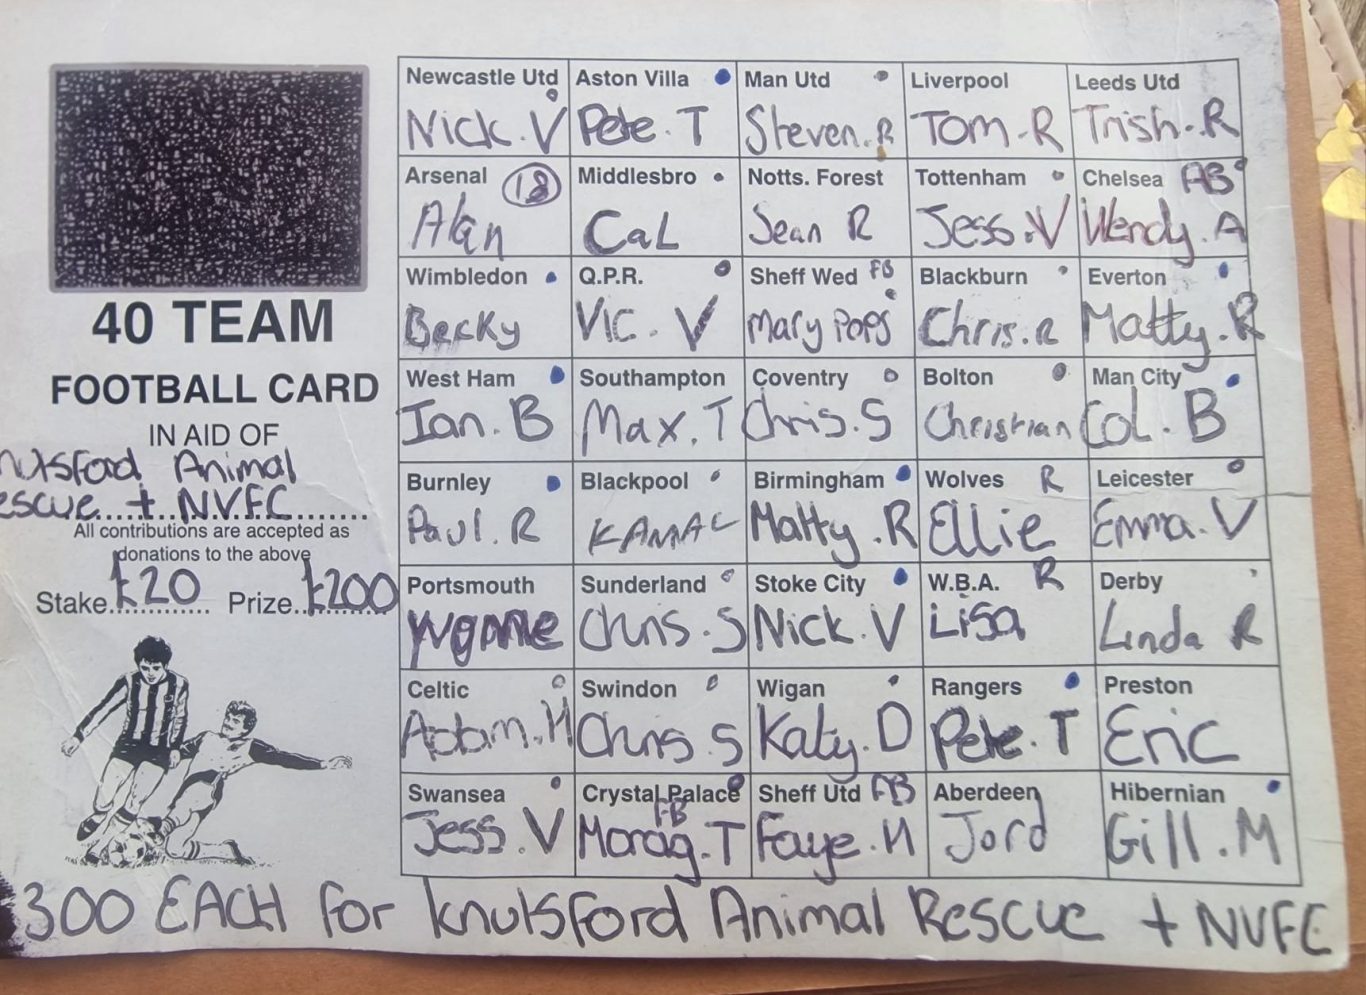 40 TEAM
FOOTBALL CARD
IN AID OF
nutsford Animal
escue + NVFC
All contributions are accepted as
donations to the above
Stake £20 Prize £200
Newcastle Utd Aston Villa Man Utd Liverpool Leeds Utd
Nick.V Pete.T Steven.R Tom.R Trish.R
Arsenal 18 Middlesbro Notts. Forest Tottenham Chelsea AB
Alan CaL Jean R Jess.V Wendy.A
Wimbledon Q.P.R. Sheff Wed FB Blackburn Everton
Becky Vic. V Mary Pops Chris.R Matty.R
West Ham Southampton Coventry Bolton Man City
Ian.B Max.T Chris.S Christian Col.B
Burnley Blackpool Birmingham Wolves R Leicester
Paul.R Matty.R Ellie Emma.V
Portsmouth Sunderland Stoke City W.B.A. R Derby
Yvonne Chris.S Nick.V Lisa Linda R
Celtic Swindon Wigan Rangers Preston
Adam.H Chris.S Katy.D Pete.T Eric
Swansea Crystal Palace Sheff Utd FB Aberdeen Hibernian
FB
Jess.V Morag.T Faye.H Jord Gill.M
300 EACH for knutsford Animal Rescue + NVFC